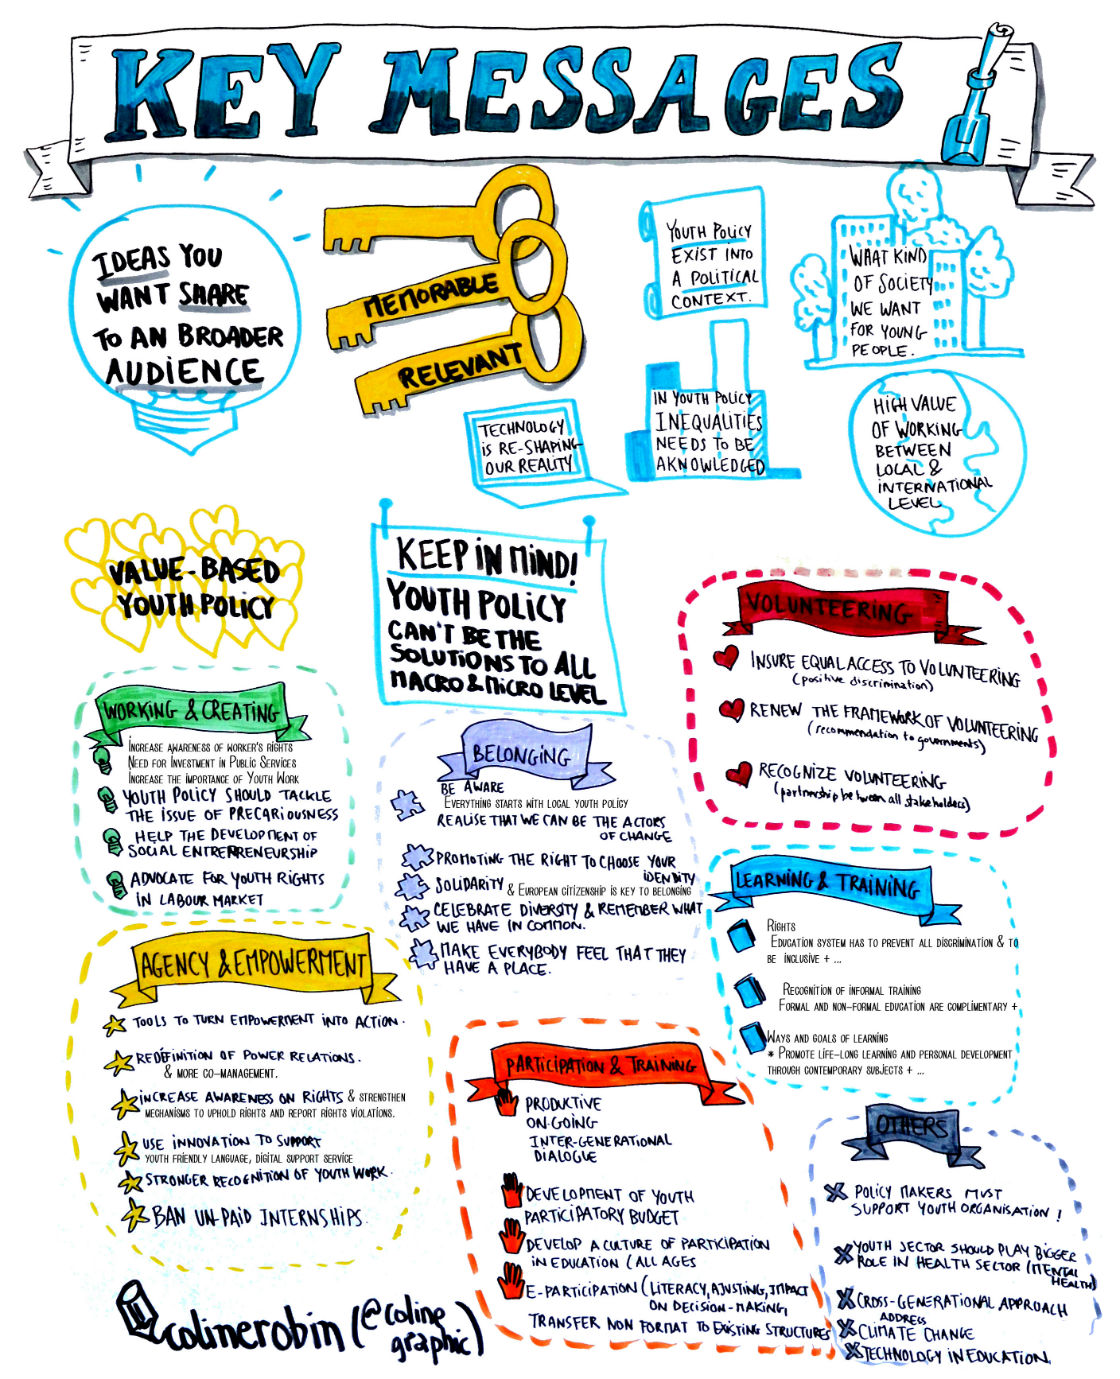 KEY MESSAGES
IDEAS YOU
WANT SHARE
TO AN BROADER
AUDIENCE
MEMORABLE
RELEVANT
YOUTH POLICY
EXIST INTO
A POLITICAL
CONTEXT.
WHAT KIND
OF SOCIETY
WE WANT
FOR YOUNG
PEOPLE.
TECHNOLOGY
IS RE-SHAPING
OUR REALITY
IN YOUTH POLICY
INEQUALITIES
NEEDS TO BE
AKNOWLEDGED
HIGH VALUE
OF WORKING
BETWEEN
LOCAL &
INTERNATIONAL
LEVEL
VALUE-BASED
YOUTH POLICY
KEEP IN MIND!
YOUTH POLICY
CAN'T BE THE
SOLUTIONS TO ALL
MACRO & MICRO LEVEL
VOLUNTEERING
INSURE EQUAL ACCESS TO VOLUNTEERING
(positive discrimination)
RENEW THE FRAMEWORK OF VOLUNTEERING
(recommendation to governments)
RECOGNIZE VOLUNTEERING
(partnership between all stakeholders)
WORKING & CREATING
INCREASE AWARENESS OF WORKER'S RIGHTS
NEED FOR INVESTMENT IN PUBLIC SERVICES
INCREASE THE IMPORTANCE OF YOUTH WORK
YOUTH POLICY SHOULD TACKLE
THE ISSUE OF PRECARIOUSNESS
HELP THE DEVELOPMENT OF
SOCIAL ENTREPRENEURSHIP
ADVOCATE FOR YOUTH RIGHTS
IN LABOUR MARKET
BELONGING
BE AWARE
EVERYTHING STARTS WITH LOCAL YOUTH POLICY
REALISE THAT WE CAN BE THE ACTORS
OF CHANGE
PROMOTING THE RIGHT TO CHOOSE YOUR
IDENTITY
SOLIDARITY & EUROPEAN CITIZENSHIP IS KEY TO BELONGING
CELEBRATE DIVERSITY & REMEMBER WHAT
WE HAVE IN COMMON.
MAKE EVERYBODY FEEL THAT THEY
HAVE A PLACE.
LEARNING & TRAINING
RIGHTS
EDUCATION SYSTEM HAS TO PREVENT ALL DISCRIMINATION & TO
BE INCLUSIVE + ...
RECOGNITION OF INFORMAL TRAINING
FORMAL AND NON-FORMAL EDUCATION ARE COMPLIMENTARY +
WAYS AND GOALS OF LEARNING
* PROMOTE LIFE-LONG LEARNING AND PERSONAL DEVELOPMENT
THROUGH CONTEMPORARY SUBJECTS + ...
AGENCY & EMPOWERMENT
TOOLS TO TURN EMPOWERMENT INTO ACTION.
REDEFINITION OF POWER RELATIONS.
& MORE CO-MANAGEMENT.
INCREASE AWARENESS ON RIGHTS & STRENGTHEN
MECHANISMS TO UPHOLD RIGHTS AND REPORT RIGHTS VIOLATIONS.
USE INNOVATION TO SUPPORT
YOUTH FRIENDLY LANGUAGE, DIGITAL SUPPORT SERVICE
STRONGER RECOGNITION OF YOUTH WORK.
BAN UN-PAID INTERNSHIPS.
PARTICIPATION & TRAINING
PRODUCTIVE
ON-GOING
INTER-GENERATIONAL
DIALOGUE
DEVELOPMENT OF YOUTH
PARTICIPATORY BUDGET
DEVELOP A CULTURE OF PARTICIPATION
IN EDUCATION (ALL AGES
E-PARTICIPATION (LITERACY, AJUSTING, IMPACT
ON DECISION-MAKING,
TRANSFER NON FORMAT TO EXISTING STRUCTURES
OTHERS
POLICY MAKERS MUST
SUPPORT YOUTH ORGANISATION !
YOUTH SECTOR SHOULD PLAY BIGGER
ROLE IN HEALTH SECTOR (MENTAL
HEALTH)
CROSS-GENERATIONAL APPROACH
ADDRESS
CLIMATE CHANGE
TECHNOLOGY IN EDUCATION.
colinerobin (@coline
graphic)